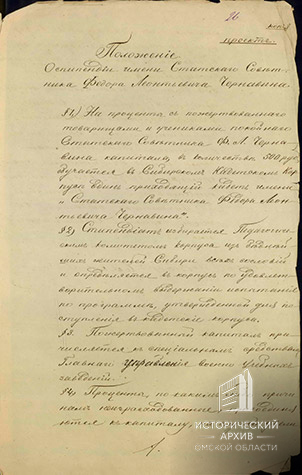 26
проектъ
Положеніе
О стипендіи имени Статскаго Совѣт-
ника Ѳедора Леонтьевича Чернавина.
§1) На проценты съ пожертвованнаго
товарищами и учениками покойнаго
Статскаго Совѣтника Ѳ. Л. Черна-
вина капитала, въ количествѣ 500 руб,
въ Сибирскомъ Кадетскомъ Кор-
пусѣ одинъ приходящій кадетъ имени
"Статскаго Совѣтника Ѳедора Леон-
тьевича Чернавина".
§2) Стипендіатъ избирается Педагогиче-
скимъ комитетомъ корпуса изъ
жителей Сибири всѣхъ сословій
и опредѣляется въ корпусъ по удовле-
творительномъ выдержаніи испытанія
по программѣ, утвержденной для по-
ступленія въ кадетскіе корпуса.
§3. Пожертвованный капиталъ при-
числяется къ спеціальнымъ средствамъ
Главнаго Управленія военно-учебныхъ
заведеній.
§4) Проценты, по какимъ либо причи-
намъ неизрасходованные,
къ капиталу
ИСТОРИЧЕСКИЙ
АРХИВ
ОМСКОЙ ОБЛАСТИ